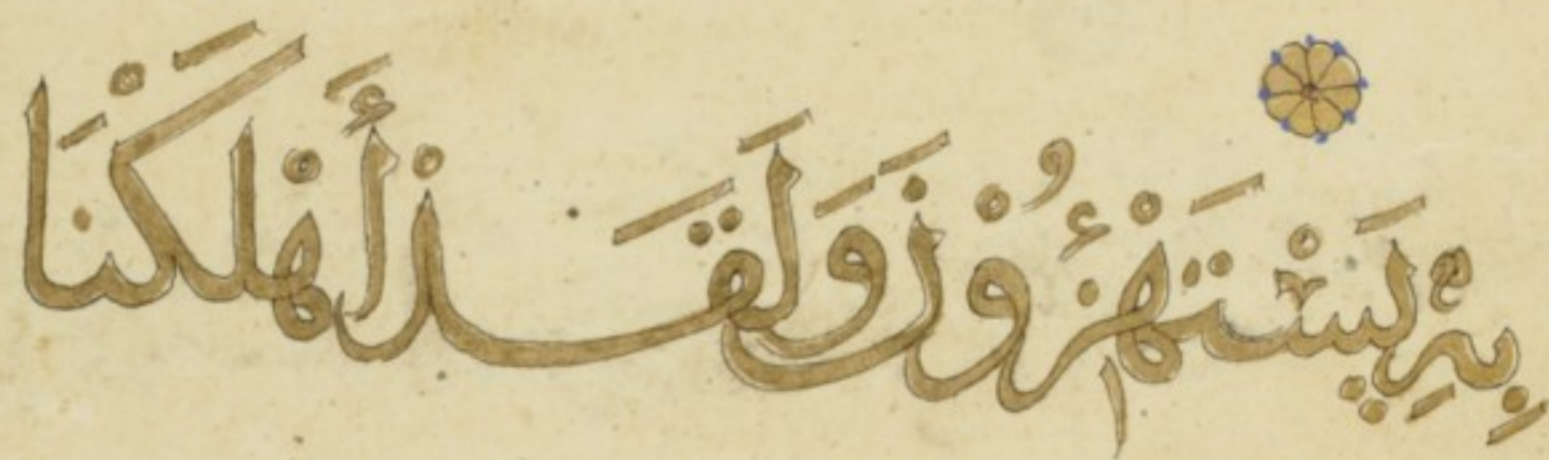 بِهِ يَسْتَهْزِءُوْنَ وَلَقَدْ أَهْلَكْنَا